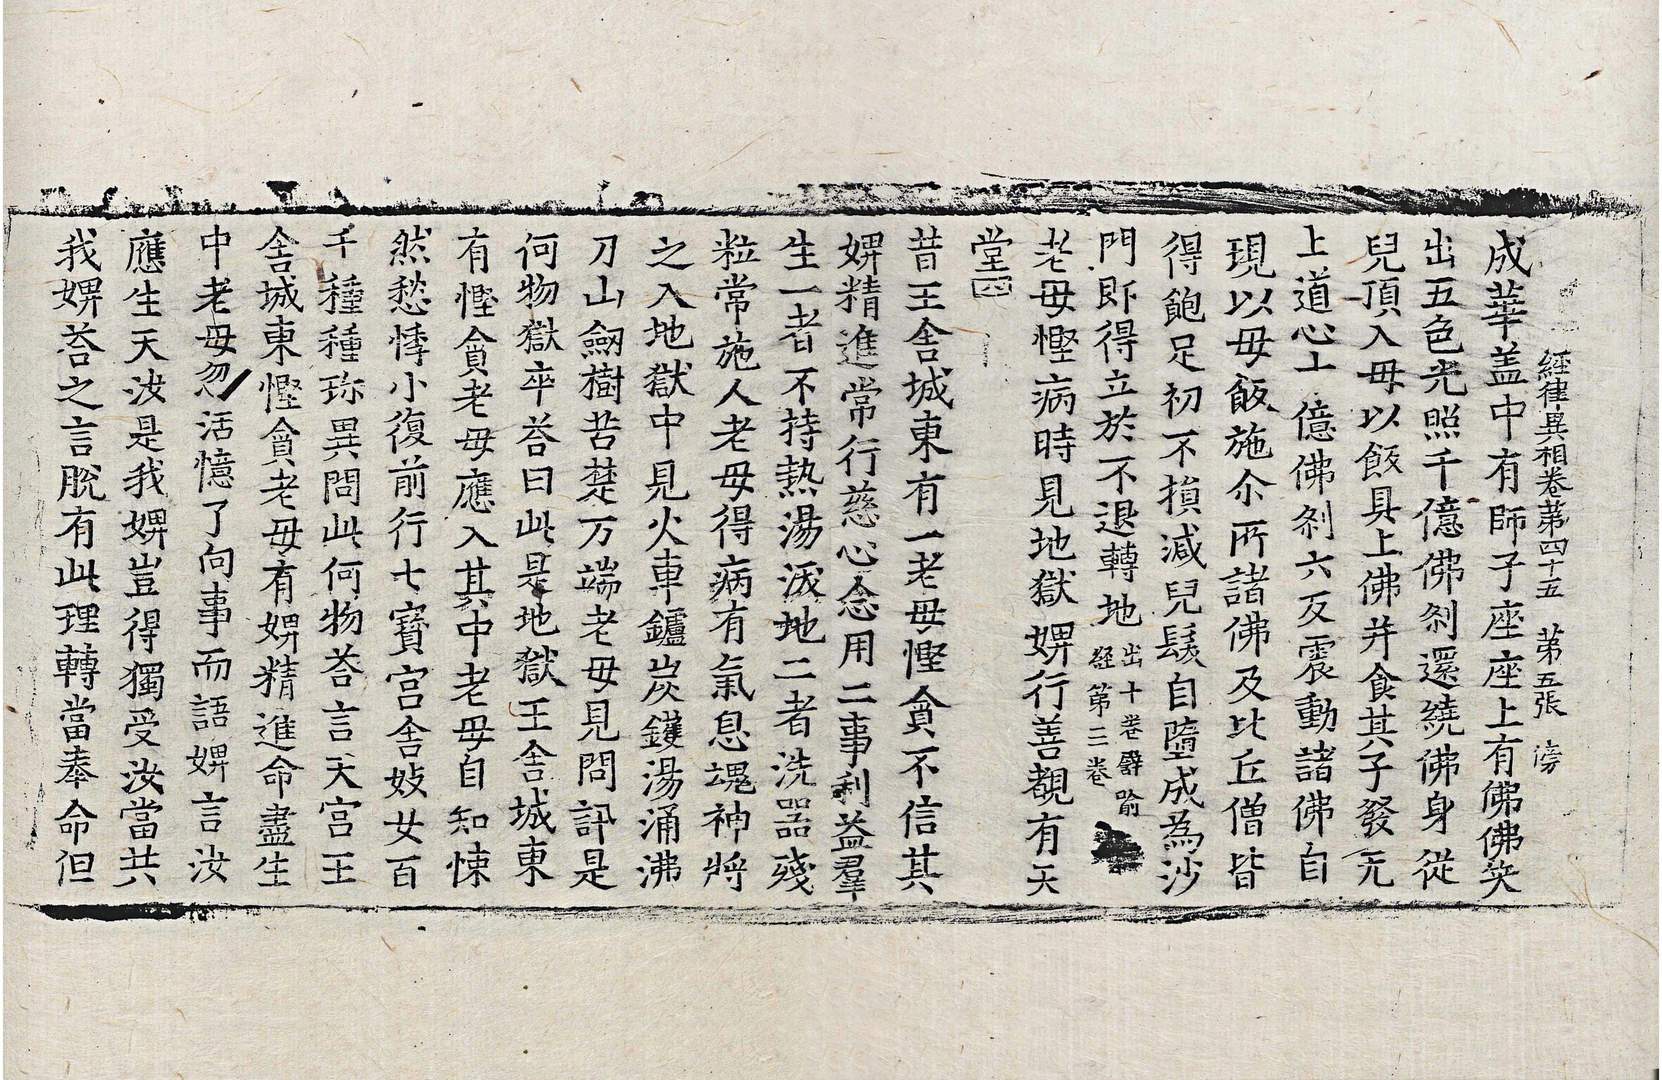 經律異相卷第四十五　第五張　傍
成華盖中有師子座座上有佛佛笑
出五色光照千億佛刹還繞佛身從
兒頂入母以飯具上佛并食其子發无
上道心十億佛刹六反震動諸佛自
現以母飯施尒所諸佛及比丘僧皆
得飽足初不損減兒髮自墮成為沙
門即得立於不退轉地出十卷譬喻
經第三卷
老母慳病時見地獄婢行善覩有天
堂四
昔王舍城東有一老母慳貪不信其
婢精進常行慈心念用二事利益羣
生一者不持熱湯潑地二者洗器殘
粒常施人老母得病有氣息䰟神將
之入地獄中見火車鑪炭鑊湯涌沸
刀山劒樹苦楚万端老母見問訊是
何物獄卒荅曰此是地獄王舍城東
有慳貪老母應入其中老母自知悚
然愁悸小復前行七寶宮舍妓女百
千種種珎異問此何物荅言天宮王
舍城東慳貪老母有婢精進命盡生
中老母忽活憶了向事而語婢言汝
應生天汝是我婢豈得獨受汝當共
我婢荅之言脫有此理轉當奉命但